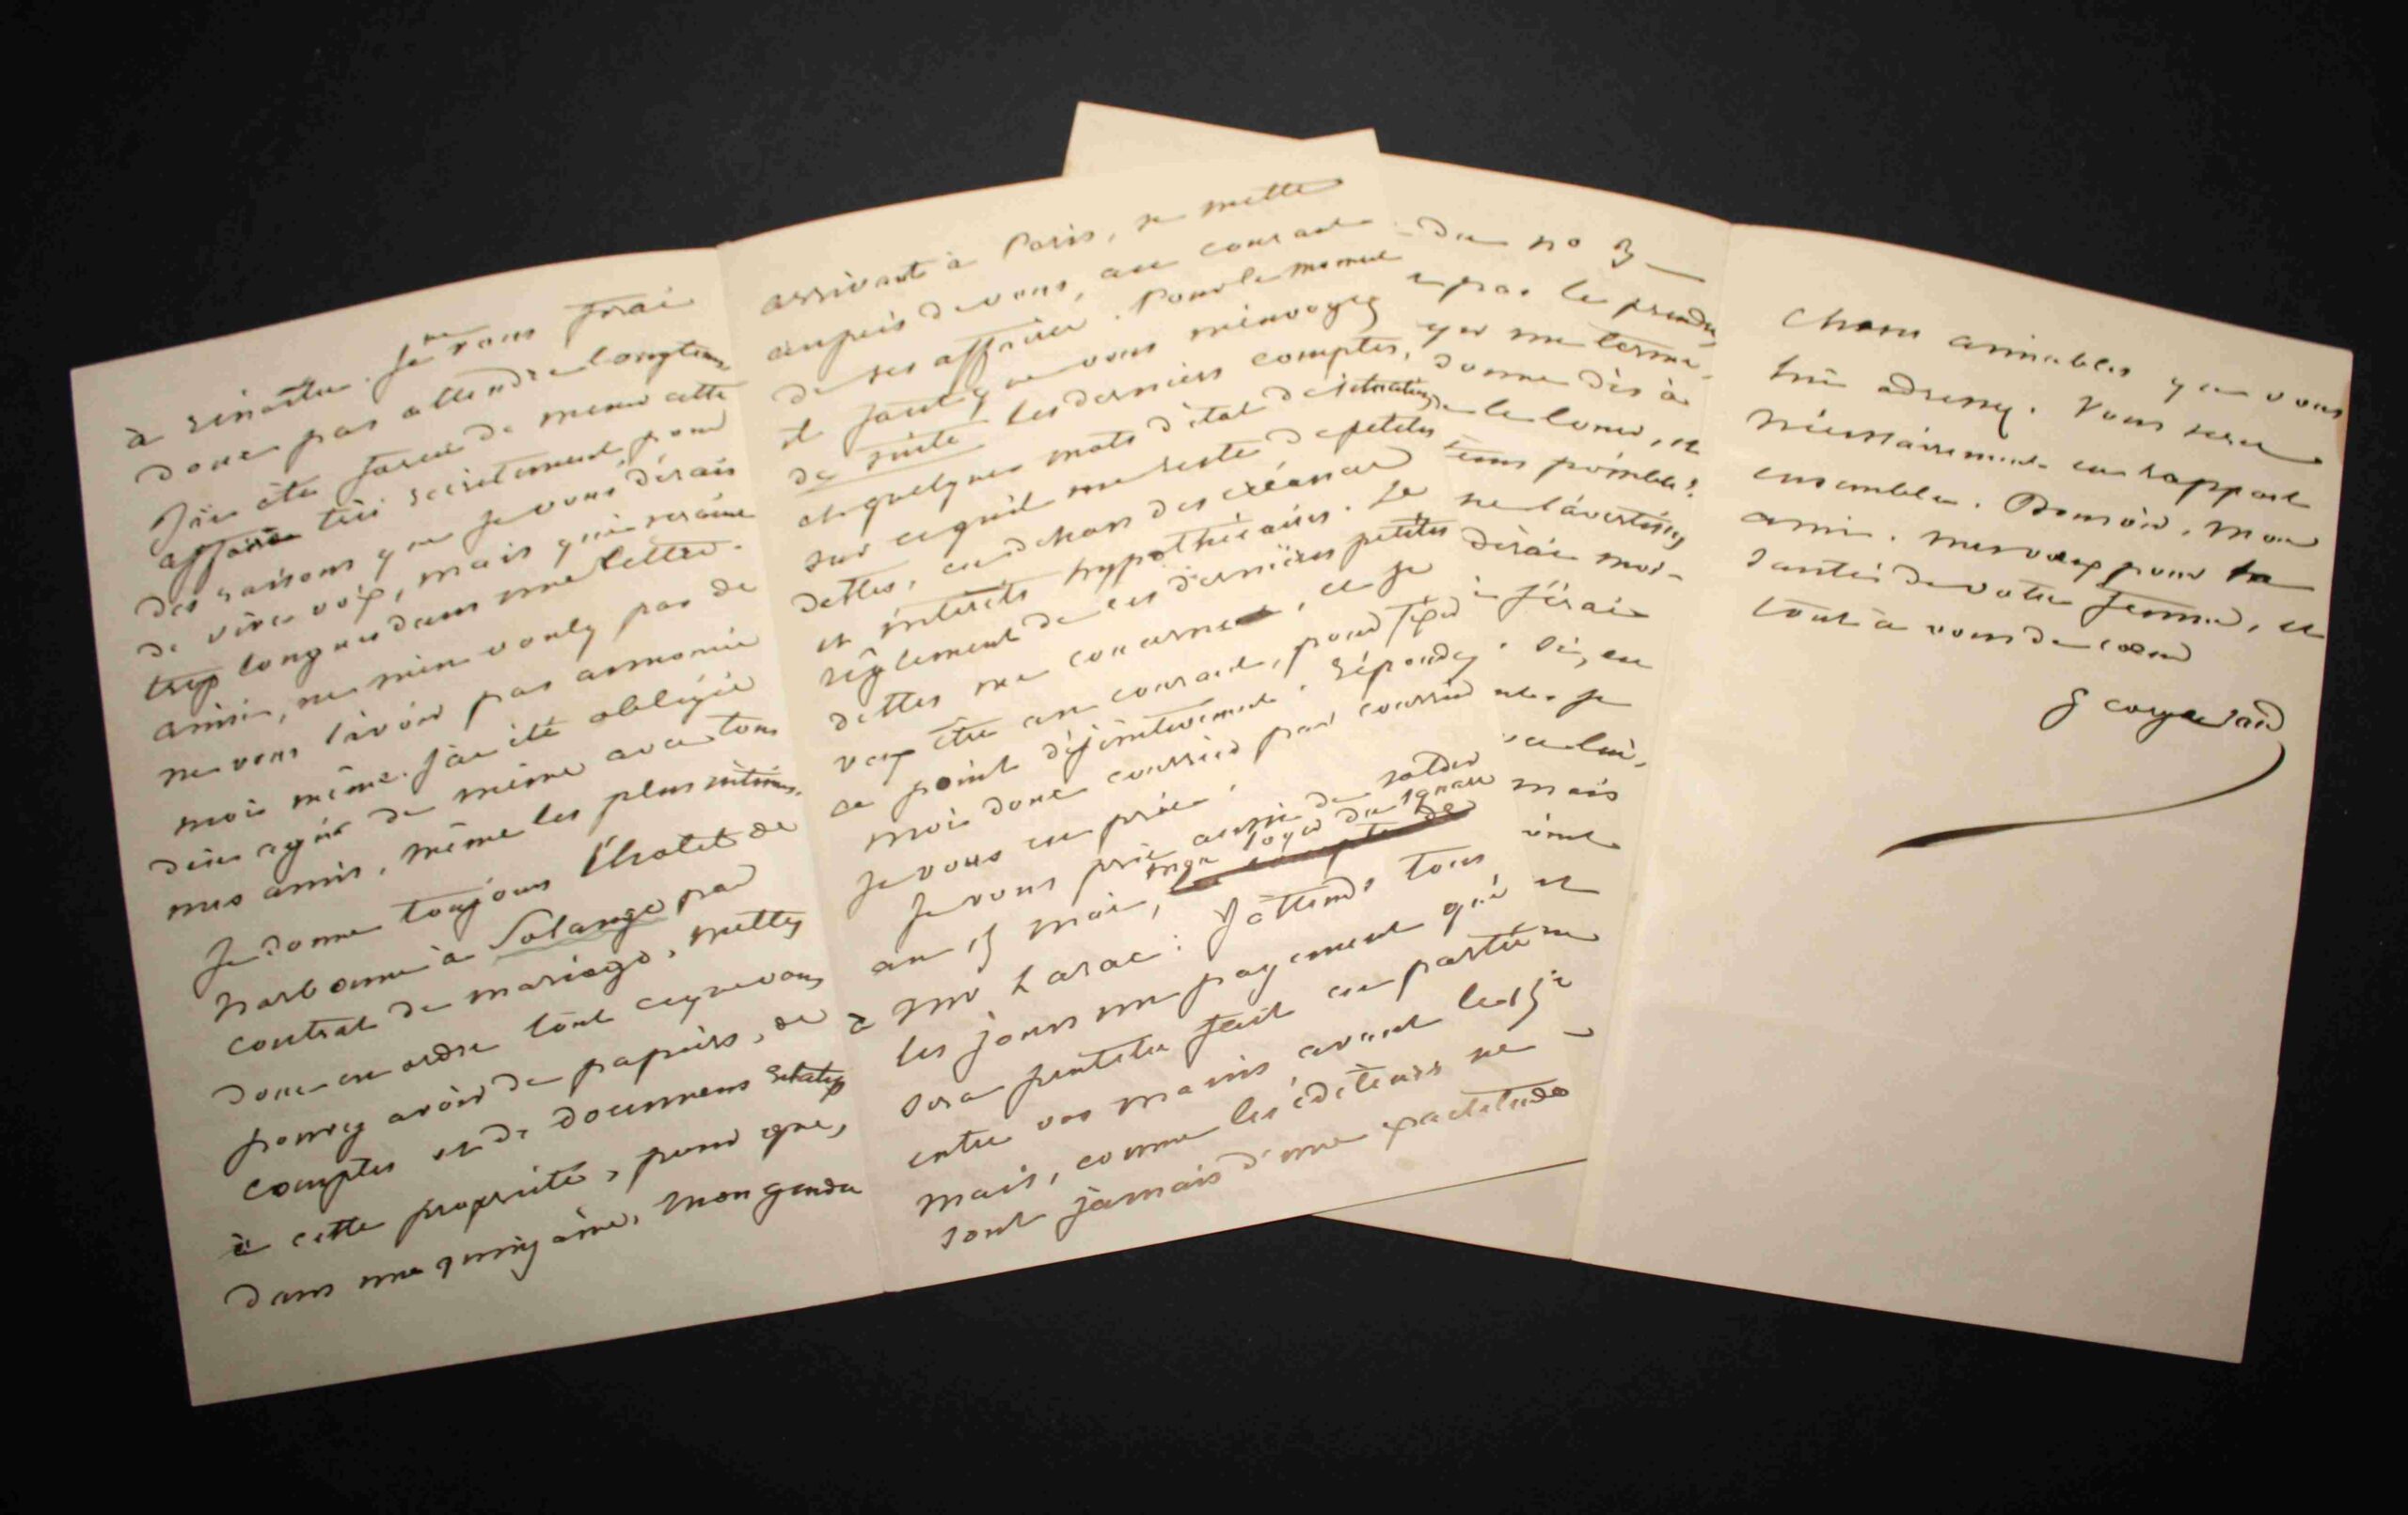 à remettre. Je ne vous ferai
donc pas attendre longtems
J'ai été forcée de mener cette
affaire très secrètement, pour
des raisons que je vous dirais
de vive voix, mais qui seraient
trop longues dans une lettre.
Ainsi, ne m'en voulez pas de
ne vous l'avoir pas annoncé
moi même. J'ai été obligée
d'en agir de même avec tous
mes amis, même les plus intimes.
Je donne toujours l'hotel de
Narbonne à Solange par
contrat de mariage, mettez
donc en ordre tout ce que vous
pouvez avoir de papiers, de
comptes et de documens relatifs
à cette propriété, pour que,
dans une quinzaine, mon gendre
arrivant à Paris, se mette
auprès de vous, au courant
de ses affaires. Pour le moment
il faut que vous m'envoyez
de suite les derniers comptes,
et quelques mots d'état de situation
sur ce qu'il me reste de petites
dettes, en dehors des créances
et intérêts hypothécaires. Le
règlement de ces dernières petites
dettes me concerne, et je
veux être au courant, pour fixer
ce point définitivement. Répondez
moi donc courrier par courrier
je vous en prie.
Je vous prie aussi de solder
au 15 mai, mon loyer du square
à Mr Larac. J'attends tous
les jours un payement qui
sera peutetre fait en partie
entre vos mains avant le 15
mais, comme les éditeurs ne
sont jamais d'une exactitude
du no 3
pas le prendre
que me
donne dès à
le louer, et
tems
ne l'avertissez
dirai moi-
ferai
je
lui,
mais
et
choses aimables que vous
lui adressez. Vous serez
nécessairement en rapport
ensemble. Bonsoir, mon
ami. Mes vœux pour la
santé de votre femme, et
tout à vous de cœur
George Sand